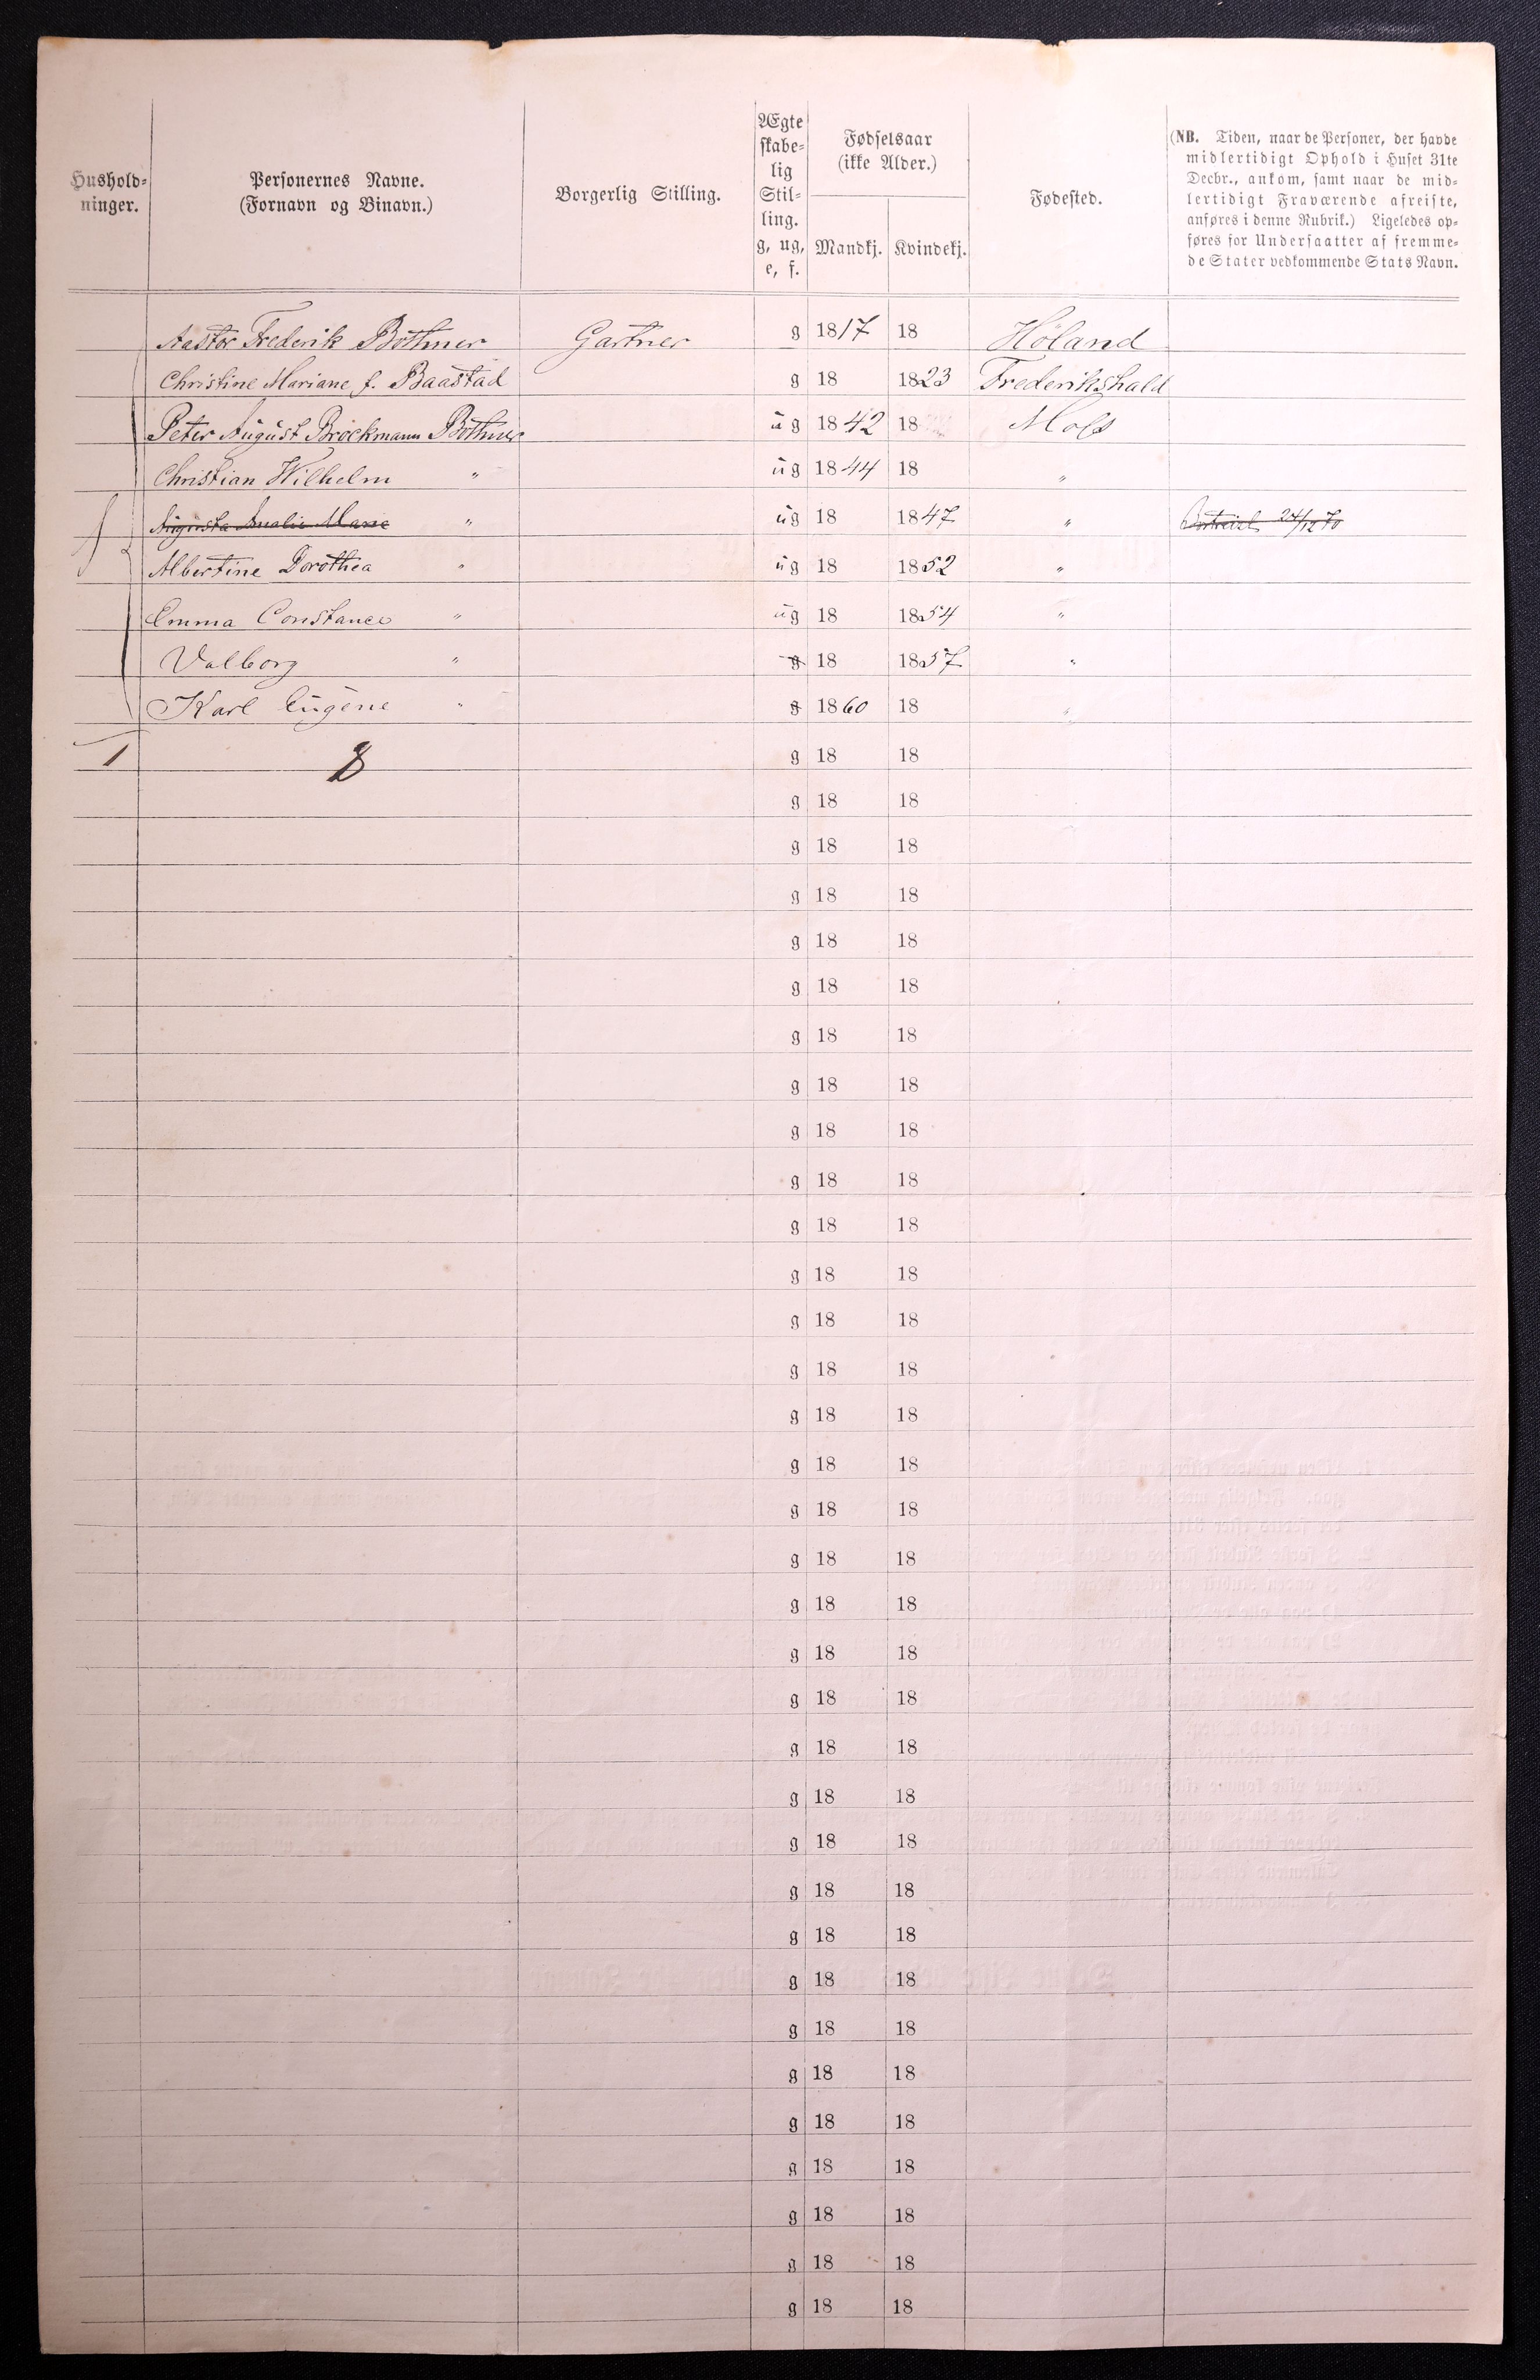 Hushold-
ninger.
Personernes Navne.
(Fornavn og Binavn.)
Borgerlig Stilling.
Ægte
skabe-
lig
Stil-
ling.
g, ug,
e, f.
Fødselsaar
(ikke Alder.)
Mandkj. Kvindekj.
Fødested.
(NB. Tiden, naar de Personer, der havde
midlertidigt Ophold i Huset 31te
Decbr., ankom, samt naar de mid-
lertidigt Fraværende afreiste,
anføres i denne Rubrik.) Ligeledes op-
føres for Undersaatter af fremme-
de Stater vedkommende Stats Navn.
Frederik Böthner Gartner g 1817 18 Höland
Christine Mariane f. Baastad g 18 1823 Frederikshald
Peter August Bröckmann Böthner ug 1842 18 Moss
Christian Wilhelm " ug 1844 18 "
Augusta Amalie Marie " ug 18 1847 " 24/12 70
Albertine Dorothea " ug 18 1852 "
Emma Constance " ug 18 1854 "
Valborg " g 18 1857 "
Karl Eugene " g 1860 18 "
1 8 g 18 18
g 18 18
g 18 18
g 18 18
g 18 18
g 18 18
g 18 18
g 18 18
g 18 18
g 18 18
g 18 18
g 18 18
g 18 18
g 18 18
g 18 18
g 18 18
g 18 18
g 18 18
g 18 18
g 18 18
g 18 18
g 18 18
g 18 18
g 18 18
g 18 18
g 18 18
g 18 18
g 18 18
g 18 18
g 18 18
g 18 18
g 18 18
g 18 18
g 18 18